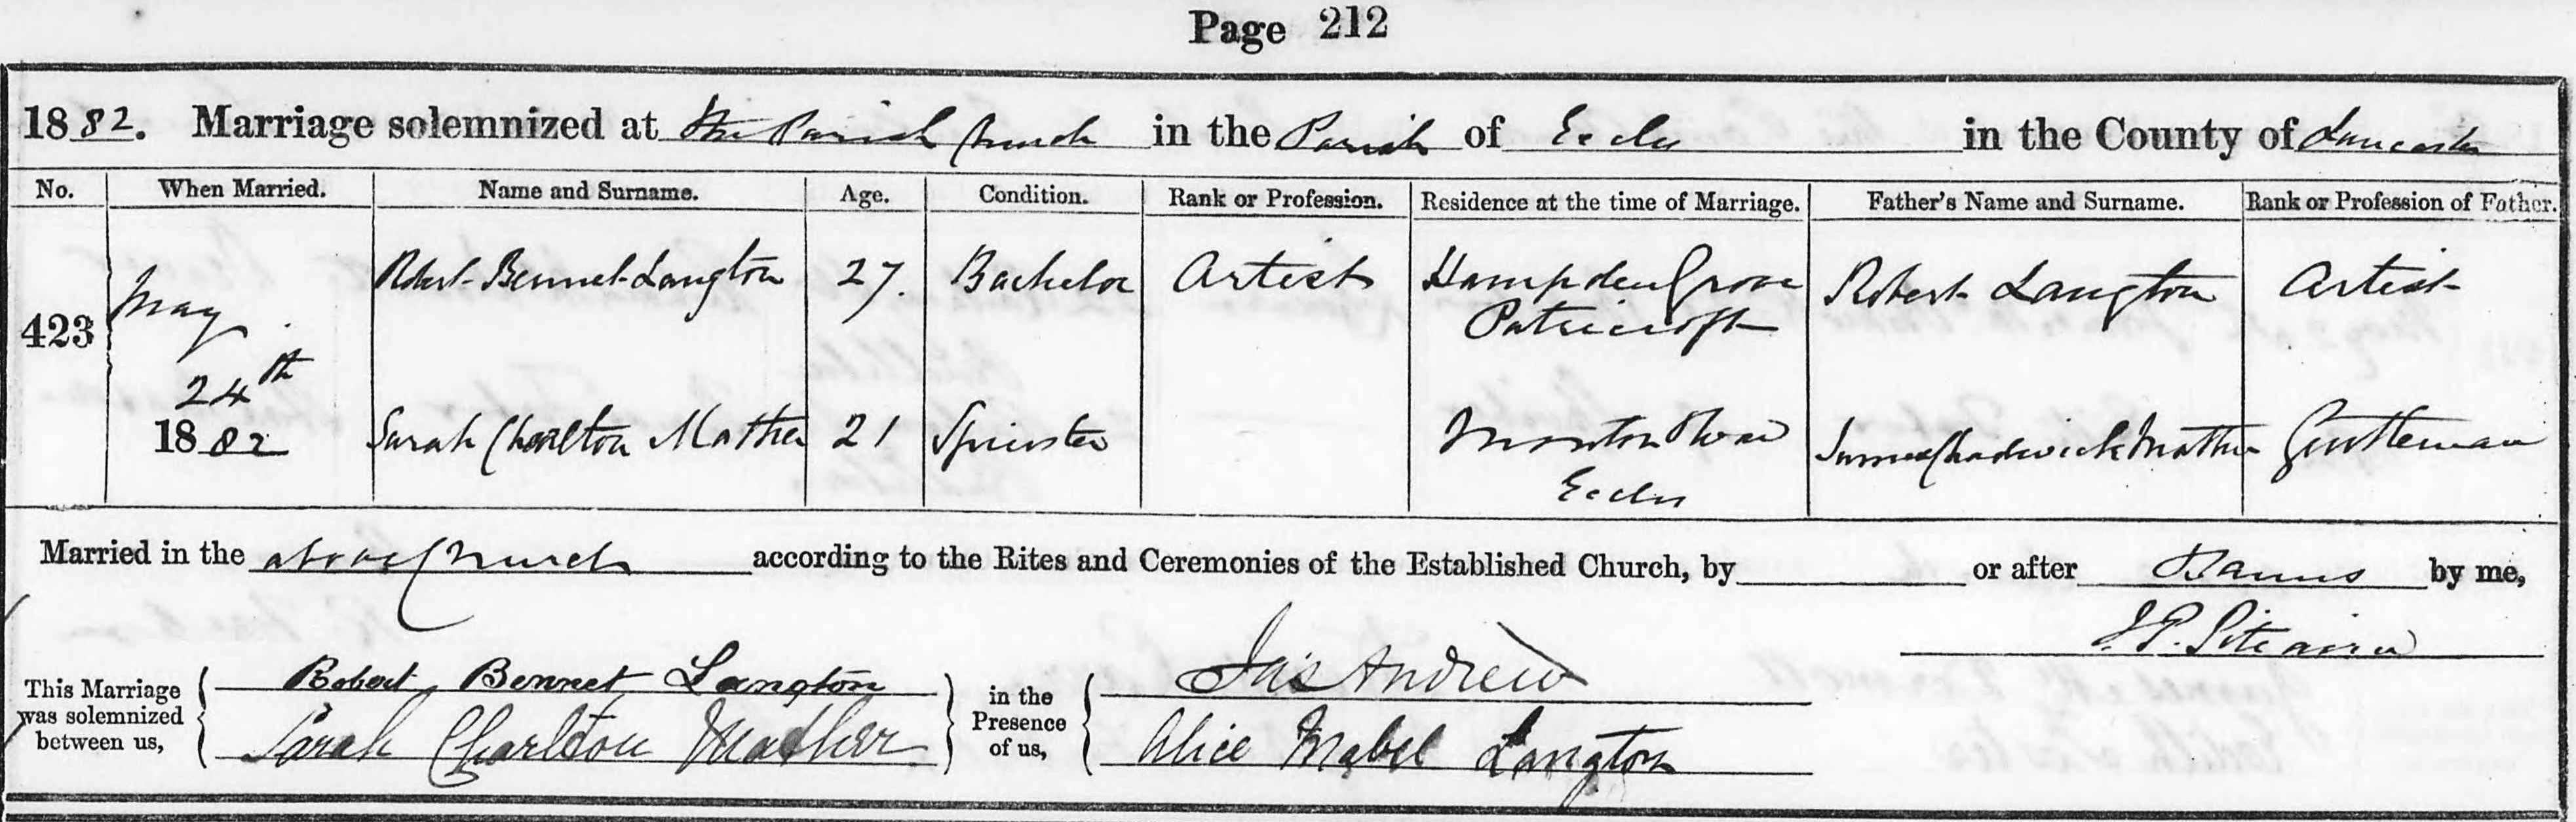 Page 212
1882. Marriage solemnized at the Parish Church in the Parish of Eccles in the County of Lancaster
No. When Married. Name and Surname. Age. Condition. Rank or Profession. Residence at the time of Marriage. Father's Name and Surname. Rank or Profession of Father.
423
May
24th
1882
Robert Bennet Langton 27. Bachelor Artist Hampden Grove
Patricroft
Robert Langton Artist
Sarah Charlton Mather 21 Spinster Monton
Eccles
James Chadwick Mather Gentleman
Married in the above Church according to the Rites and Ceremonies of the Established Church, by or after Banns by me,
J. P. Pitcairn
This Marriage
was solemnized
between us,
Robert Bennet Langton
Sarah Charlton Mather
in the
Presence
of us,
Jas Andrew
Alice Mabel Langton